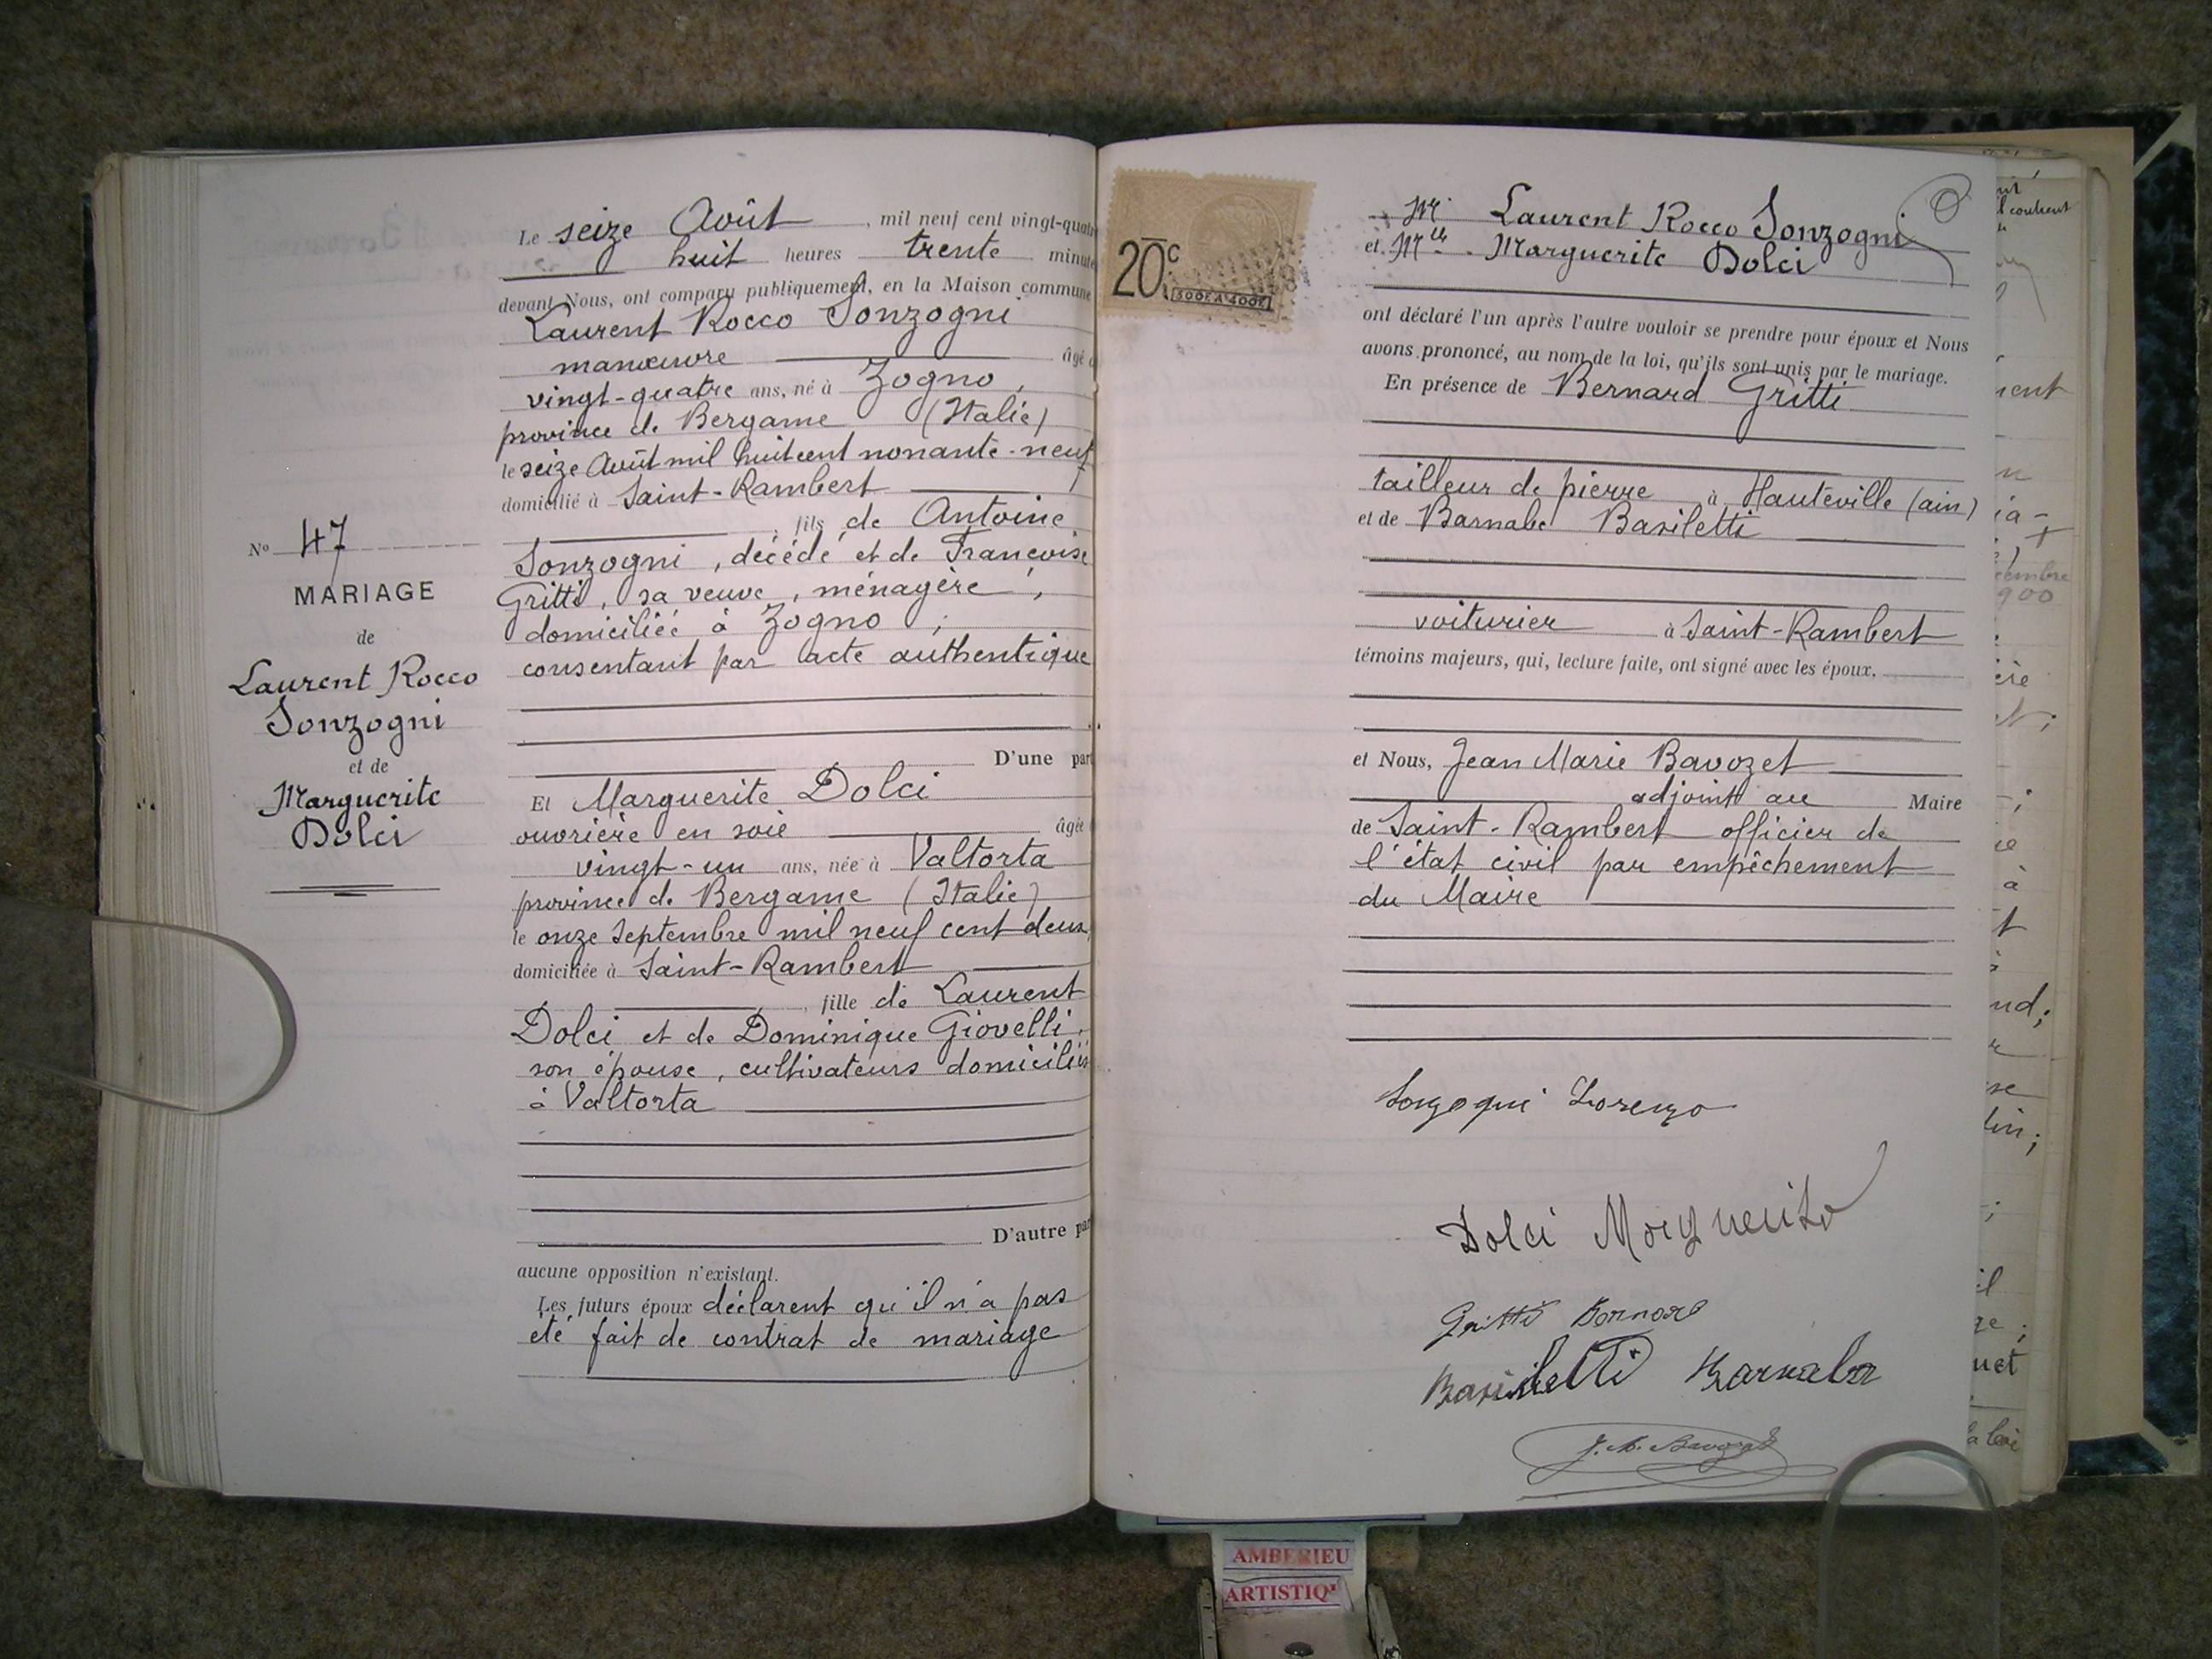 Le seize Août, mil neuf cent vingt-quatr
huit heures trente minute
devant Nous, ont comparu publiquement, en la Maison commune
Laurent Rocco Sonzogni
manœuvre âgé d
vingt-quatre ans, né à Zogno,
province de Bergame (Italie)
le seize Août mil huit cent nonante-neuf
domicilié à Saint-Rambert
, fils de Antoine
Sonzogni, décédé et de Françoise
Gritti, sa veuve, ménagère,
domiciliée à Zogno;
consentant par acte authentique
D'une part
Et Marguerite Dolci
ouvrière en soie âgée
vingt-un ans, née à Valtorta
province de Bergame (Italie)
le onze Septembre mil neuf cent deux
domiciliée à Saint-Rambert
, fille de Laurent
Dolci et de Dominique Giovelli,
son épouse, cultivateurs domiciliés
à Valtorta
D'autre par
aucune opposition n'existant.
Les futurs époux déclarent qu'il n'a pas
été fait de contrat de mariage
No 47
MARIAGE
de
Laurent Rocco
Sonzogni
et de
Marguerite
Dolci
20c
500F A 400F
Mr Laurent Rocco Sonzogni
et Mlle Marguerite Dolci
ont déclaré l'un après l'autre vouloir se prendre pour époux et Nous
avons prononcé, au nom de la loi, qu'ils sont unis par le mariage.
En présence de Bernard Gritti
tailleur de pierre à Hauteville (ain)
et de Barnabé Basiletti
voiturier à Saint-Rambert
témoins majeurs, qui, lecture faite, ont signé avec les époux.
et Nous, Jean Marie Bavozet
adjoint au Maire
de Saint-Rambert officier de
l'état civil par empêchement
du Maire
Sonzogni Lorenzo
Dolci Marguerita
Gritti Bernard
Basiletti Barnaba
J. M. Bavozet
AMBERIEU
ARTISTIQ